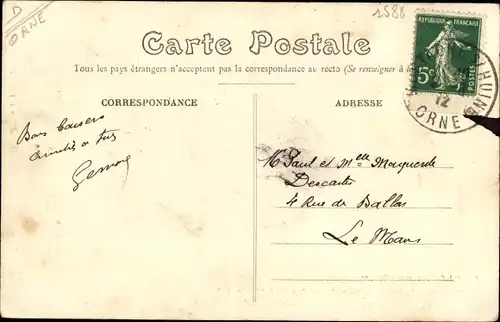 D
ORNE
1588
Carte Postale
RÉPUBLIQUE FRANÇAISE
5c
POSTES
12
ORNE
Tous les pays étrangers n'acceptent pas la correspondance au recto (Se renseigner à la
CORRESPONDANCE
ADRESSE
Bons baisers
à
Mr Paul et Melle Marguerite
Descartes
4 Rue de Ballon
Le Mans